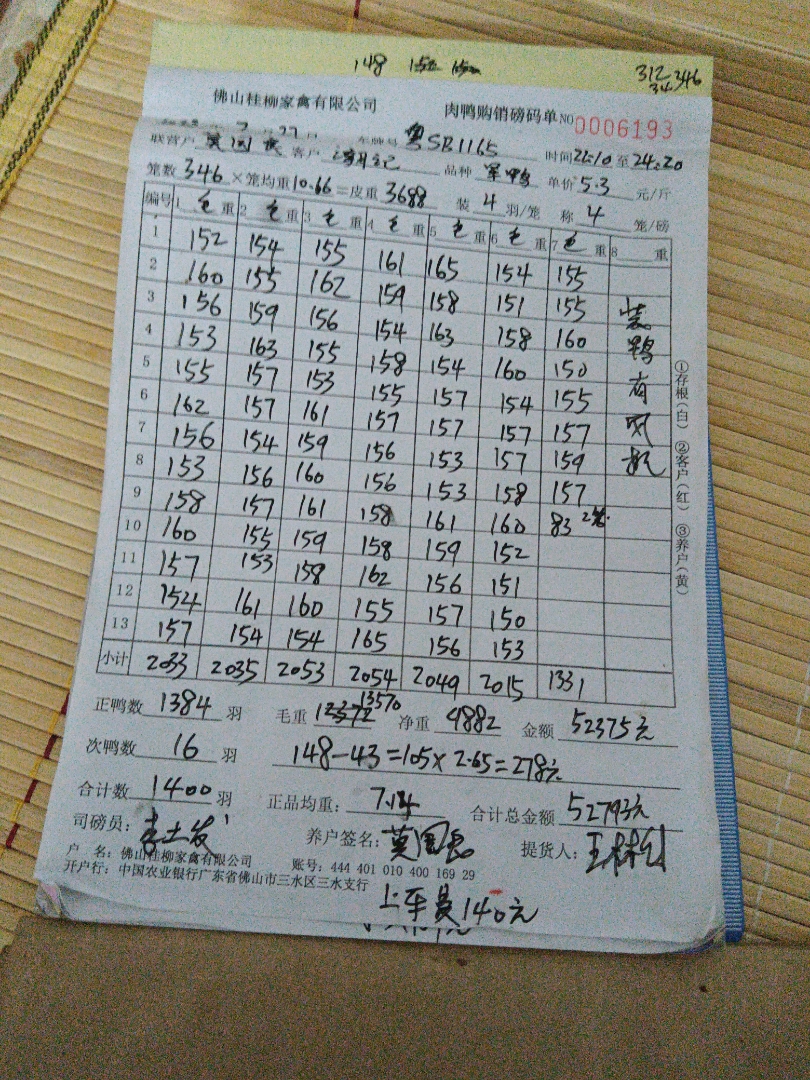 148 152 150
312 346
34
佛山桂柳家禽有限公司 肉鸭购销磅码单 NO 0006193
7月27日 车牌号 粤SR1165 时间 22:10 至 24:20
联营户 莫国长 客户 品种 军鸭 单价 5.3 元/斤
笼数 346 ×笼均重 10.66 =皮重 3688 装 4 羽/笼 称 4 笼/磅
编号 1 毛 重 2 毛 重 3 毛 重 4 毛 重 5 毛 重 6 毛 重 7 毛 重 8 重
1 152 154 155 161 165 154 155
2 160 155 162 159 158 151 155
3 156 159 156 154 163 158 160
4 153 163 155 158 154 160 150
5 155 157 153 155 157 154 155
6 162 157 161 157 157 157 157
7 156 154 159 156 153 157 159
8 153 156 160 156 153 158 157
9 158 157 161 158 161 160 83 2笼
10 160 155 159 158 159 152
11 157 153 158 162 156 151
12 154 161 160 155 157 150
13 157 154 154 165 156 153
小计 2033 2035 2053 2054 2049 2015 1331
装鸭有风机
①存根(白) ②客户(红) ③养户(黄)
正鸭数 1384 羽 毛重 13570 净重 9882 金额 52375元
次鸭数 16 羽 148-43=105×2.65=278元
合计数 1400 羽 正品均重: 7.14 合计总金额 52793元
司磅员: 养户签名: 莫国长 提货人:
户 名: 佛山桂柳家禽有限公司 账号: 444 401 010 400 169 29
开户行: 中国农业银行广东省佛山市三水区三水支行
上车员140元